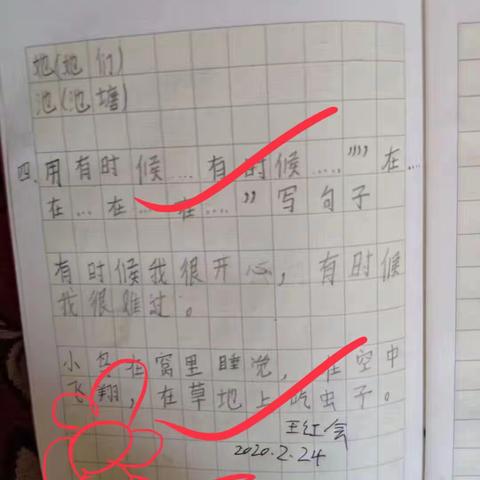 她(她们)
池(池塘)
四.用有时候…有时候…""在…
在…在…在…"写句子
有时候我很开心,有时候
我很难过。
小鸟在窝里睡觉,在空中
飞翔,在草地上吃虫子。
王红会
2020.2.24